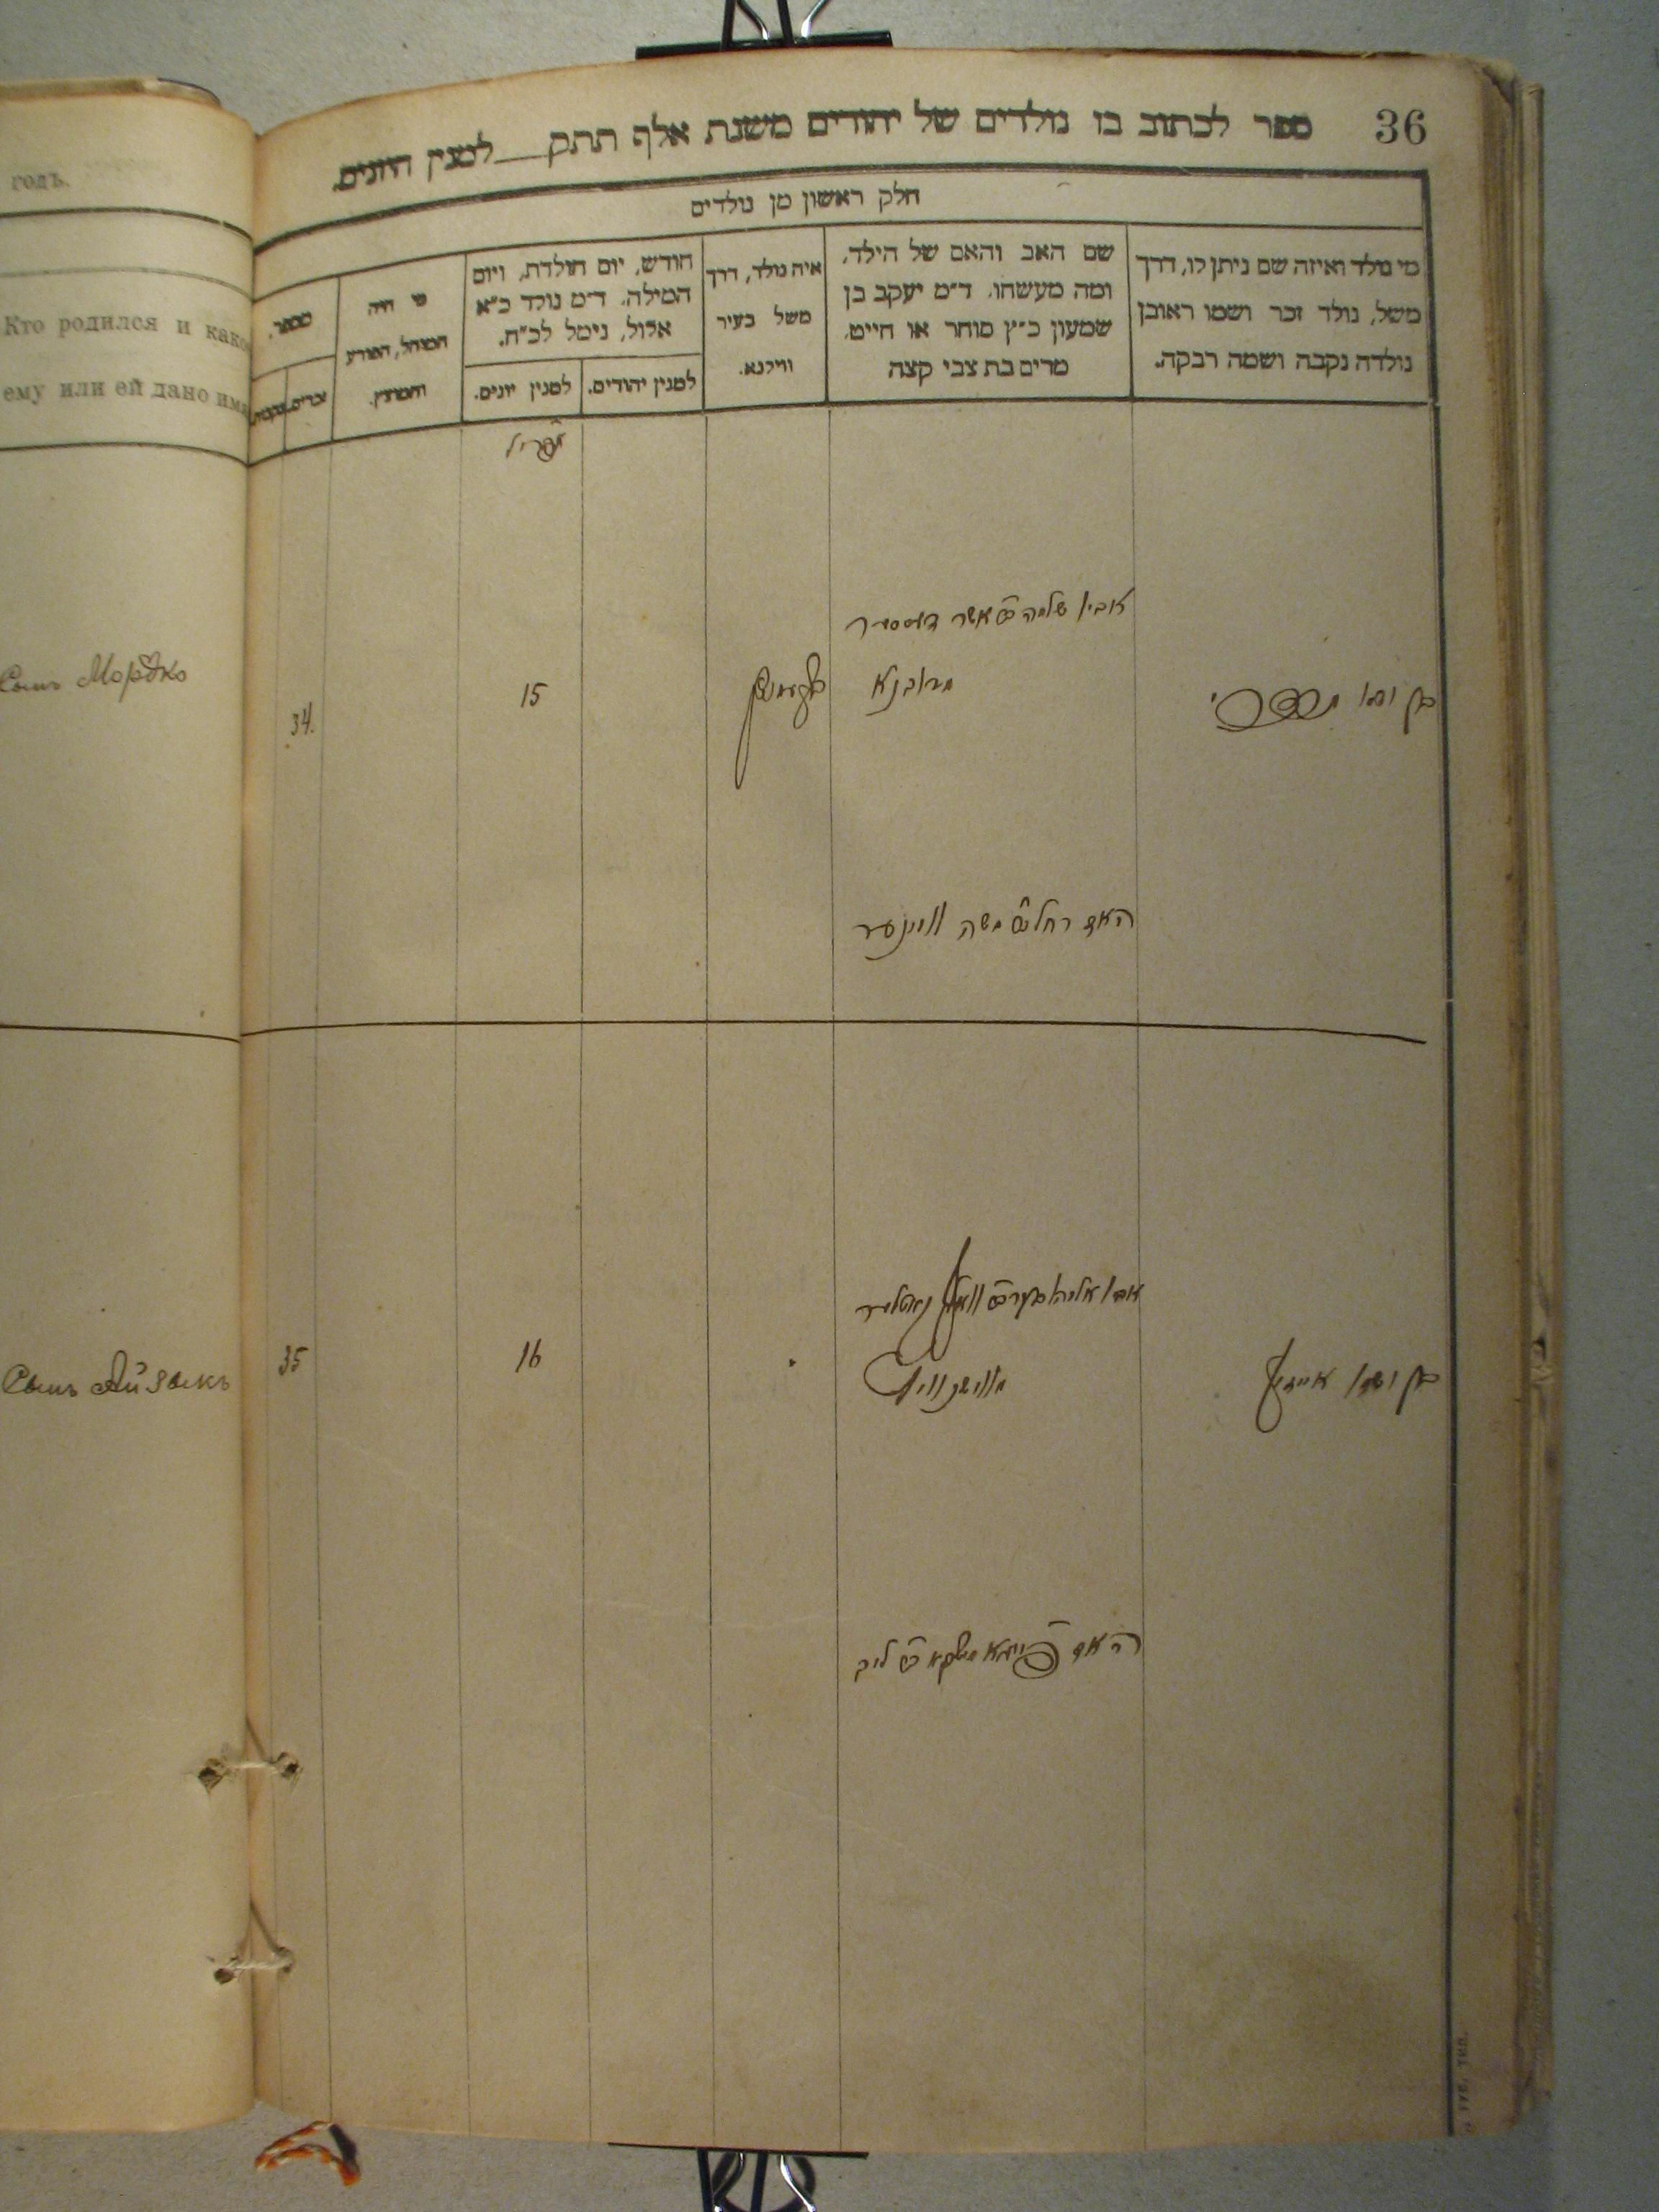 годъ.
Кто родился и како
ему или ей дано им
Сынъ Мордко
Сынъ Айзыкъ
36
ספר לכתוב בו נולדים של יהודים משנת אלף תתק__ למנין היונים.
חלק ראשון מן נולדים
מי נולד ואיזה שם ניתן לו, דרך
משל, נולד זכר ושמו ראובן
נולדה נקבה ושמה רבקה.
שם האב והאם של הילד,
ומה מעשהו. ד״מ יעקב בן
שמעון כ״ץ סוחר או חייט.
מרים בת צבי קצה
איה נולד, דרך
משל בעיר
ווילנא.
חודש, יום הולדת, ויום
המילה. ד״מ נולד כ״א
אלול, נימל לכ״ח.
למנין יהודים.
למנין יונים.
מי היה
המוהל, הפורע
והמוצץ.
מספר.
זכרים.
נקבות.
אפריל
אביו שלמה אשר
בן ושמו
15
34.
האם רחל משה ווינער
בן ושמו אייזיק
16
35
האם ליב